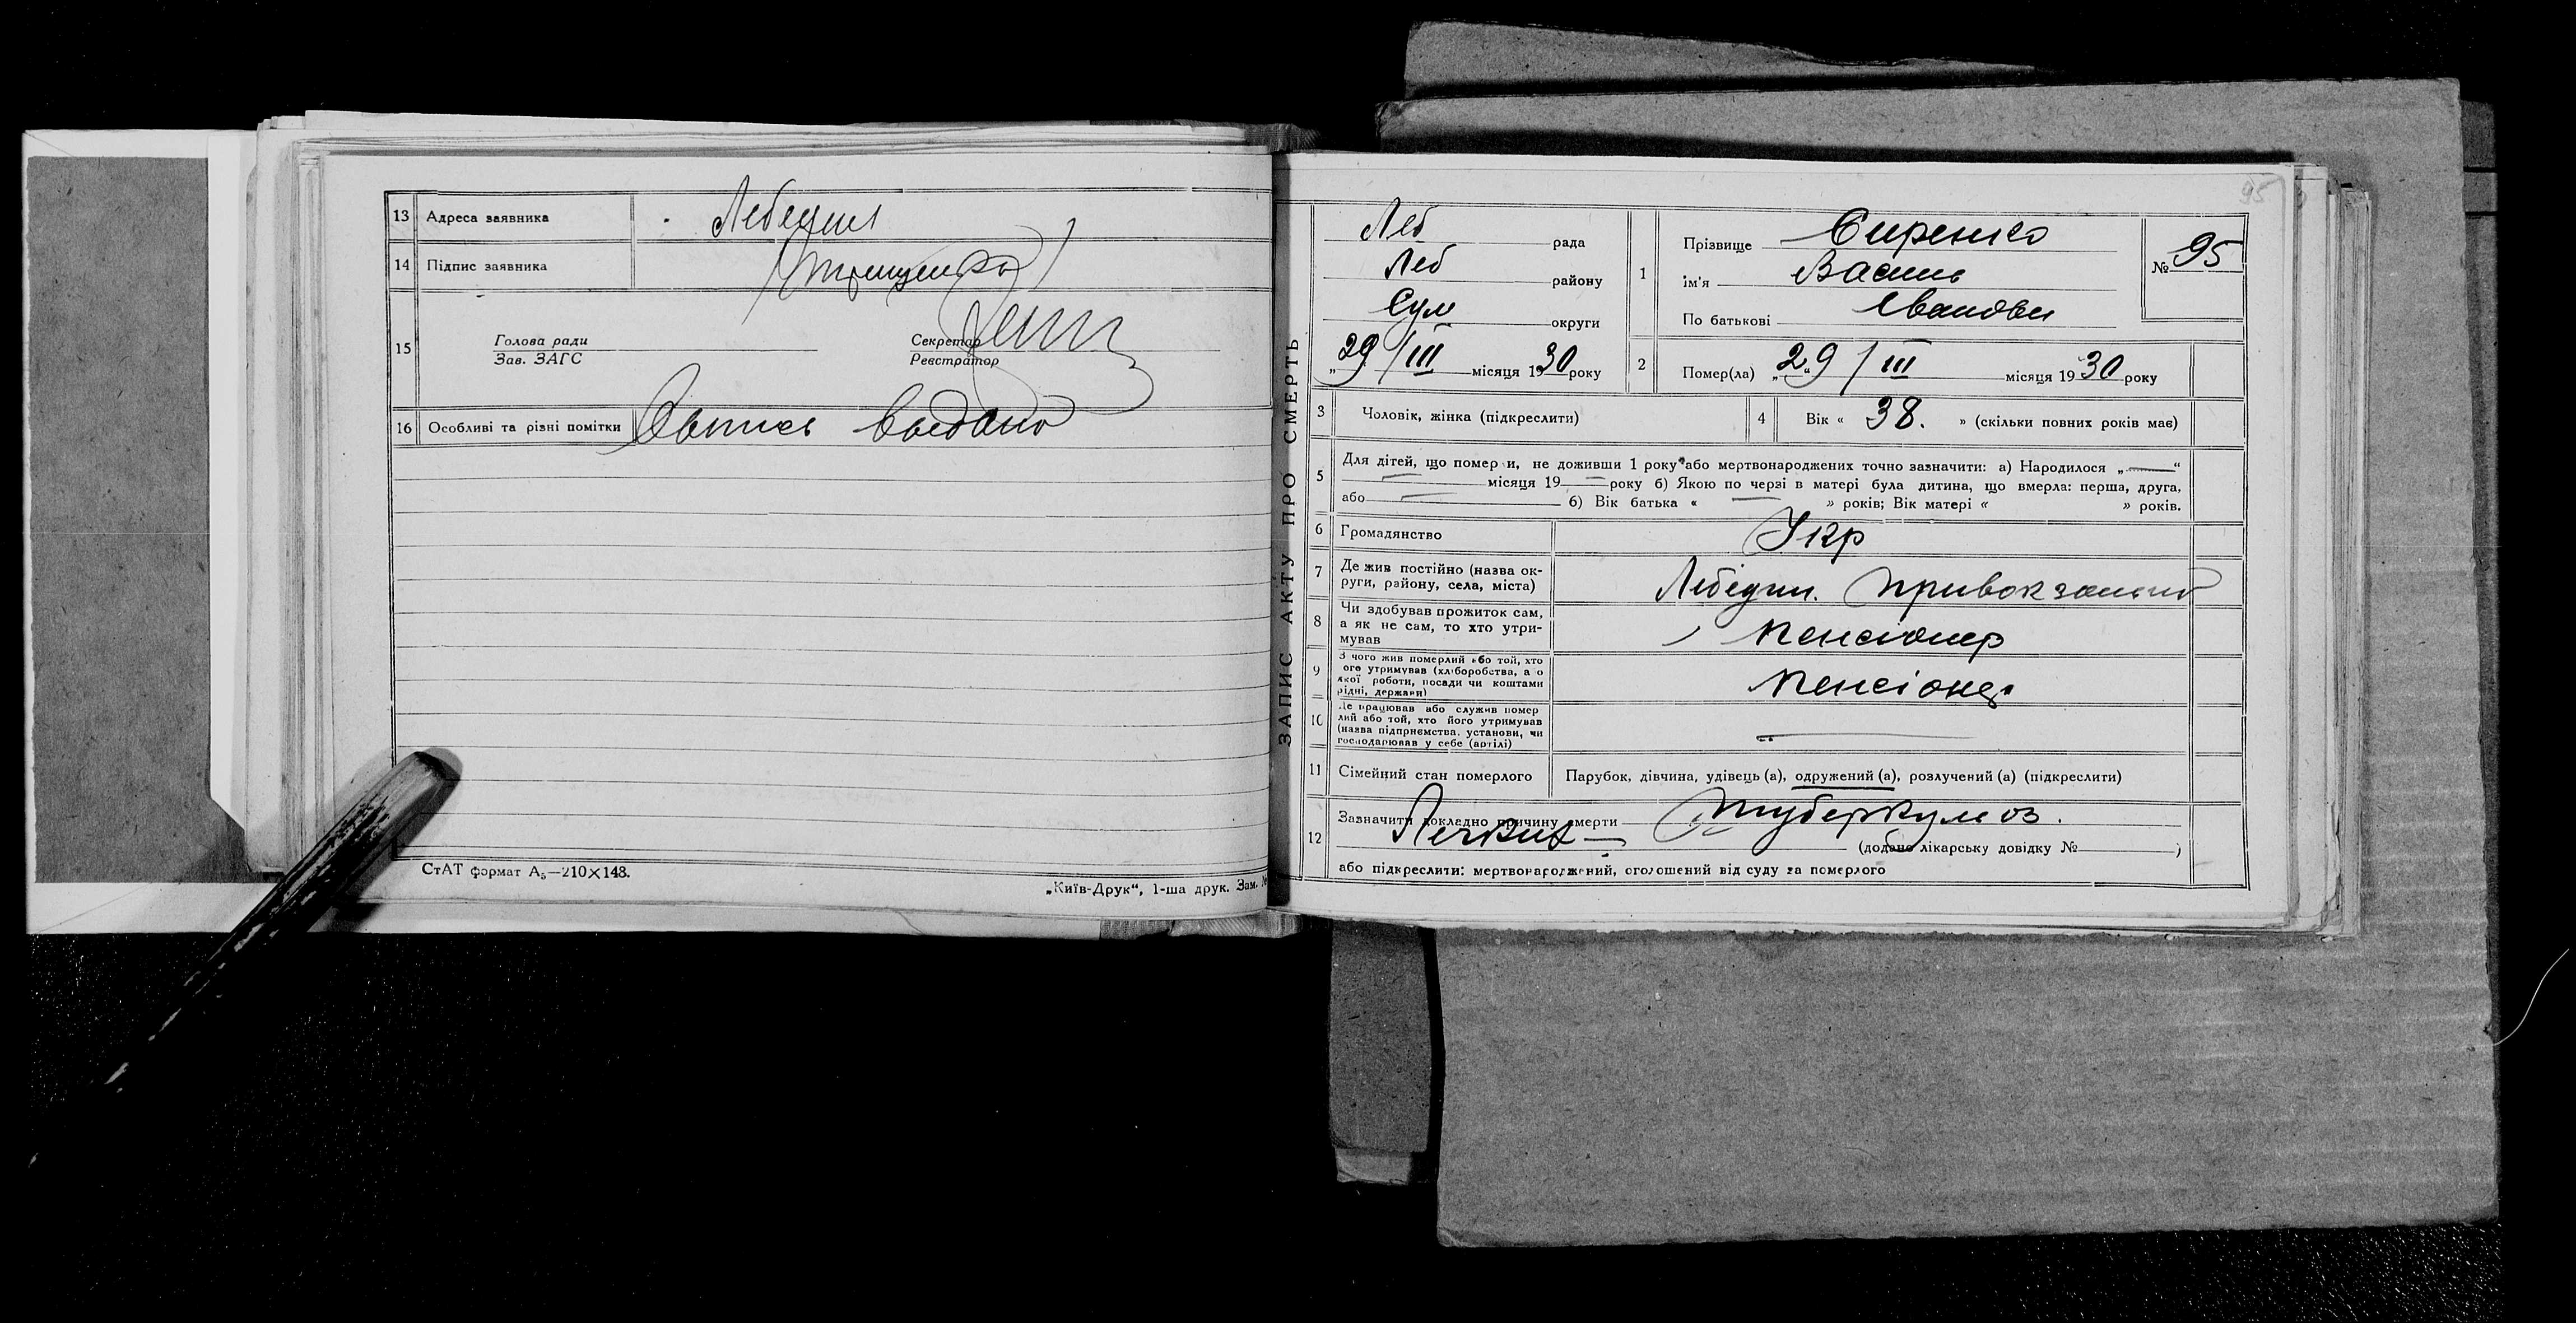 13 Адреса заявника Лебедин
14 Підпис заявника
15 Голова ради Секретар
Зав. ЗАГС Реєстратор
16 Особливі та різні помітки Выпись выдано
СтАТ формат А₅—210×148.
„Київ-Друк“, 1-ша друк. Зам. №
95
ЗАПИС АКТУ ПРО СМЕРТЬ
Леб рада
Леб району
Сум округи
„29/III місяця 1930 року
1 Прізвище Сиренко
ім'я Василь
По батькові Иванович
№ 95
2 Помер(ла) „29/III місяця 1930 року
3 Чоловік, жінка (підкреслити)
4 Вік « 38. » (скільки повних років має)
5 Для дітей, що померли, не доживши 1 року або мертвонароджених точно зазначити: а) Народилося „—“
місяця 19— року б) Якою по черзі в матері була дитина, що вмерла: перша, друга,
або б) Вік батька « — » років; Вік матері « » років.
6 Громадянство Укр
7 Де жив постійно (назва ок-
руги, району, села, міста) Лебедин. Привокзальна
8 Чи здобував прожиток сам,
а як не сам, то хто утри-
мував пенсионер
9 З чого жив померлий або той, хто
його утримував (хліборобства, а о
якої роботи, посади чи коштами
рідні, держави) пенсіонер
10 Де працював або служив помер
лий або той, хто його утримував
(назва підприємства, установи, чи
господарював у себе (артілі) —
11 Сімейний стан померлого Парубок, дівчина, удівець (а), одружений (а), розлучений (а) (підкреслити)
12 Зазначити докладно причину смерти Туберкульоз.
Легких — (додано лікарську довідку № )
або підкреслити: мертвонароджений, оголошений від суду за померлого